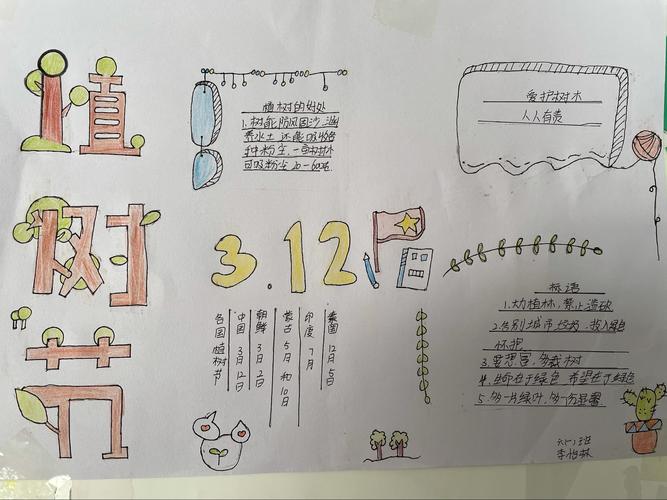 植
树
节
植树的好处
1.树能防风固沙涵
养水土 还能吸收各
种粉尘.一亩树木
可吸粉尘20-60吨
爱护树木
人人有责
3.12
各国植树节
中国 3月12日
朝鲜 3月2日
蒙古 5月和10月
印度 7月
泰国 12月5日
标语
1.大力植林,禁止滥砍
2.告别城市 投入绿色
怀抱
3.要想富,多栽树
4.生命在于绿色 希望在于绿色
5.多一片绿叶,多一份
六(1)班
李怡林